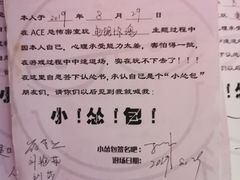 本人于 2019 年 8 月 29 日
在 ACE 恐怖密室玩 主题过程中
因本人自己，心理承受能力太差，害怕得一批，
在游戏过程中途退场，实在玩不下去了！！！
在这里自愿签下认怂书，承认自己是个“小怂包”
朋友们，请你们以后见到我就喊我：
小！怂！包！
小怂包签名吧：
退场日期：2019.8.29